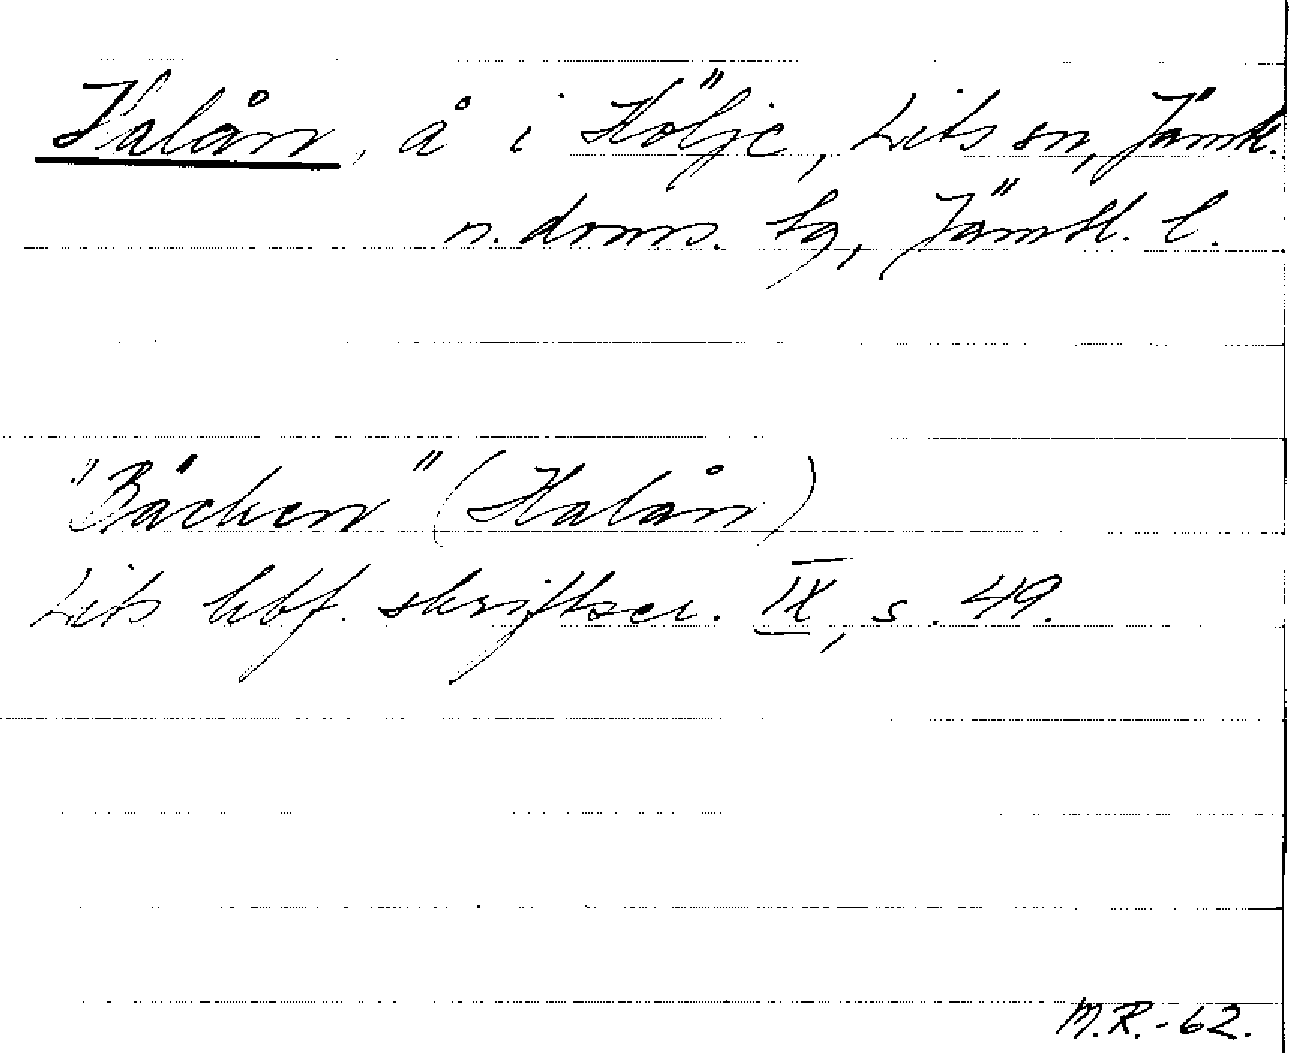 Halån, å i Hölje, Lits sn, Jämtl.
n. doms. tg, Jämtl. l.
"Bäcken" (Halån)
Lits hbf. skriftser. IX, s. 49.
M.R.-62.